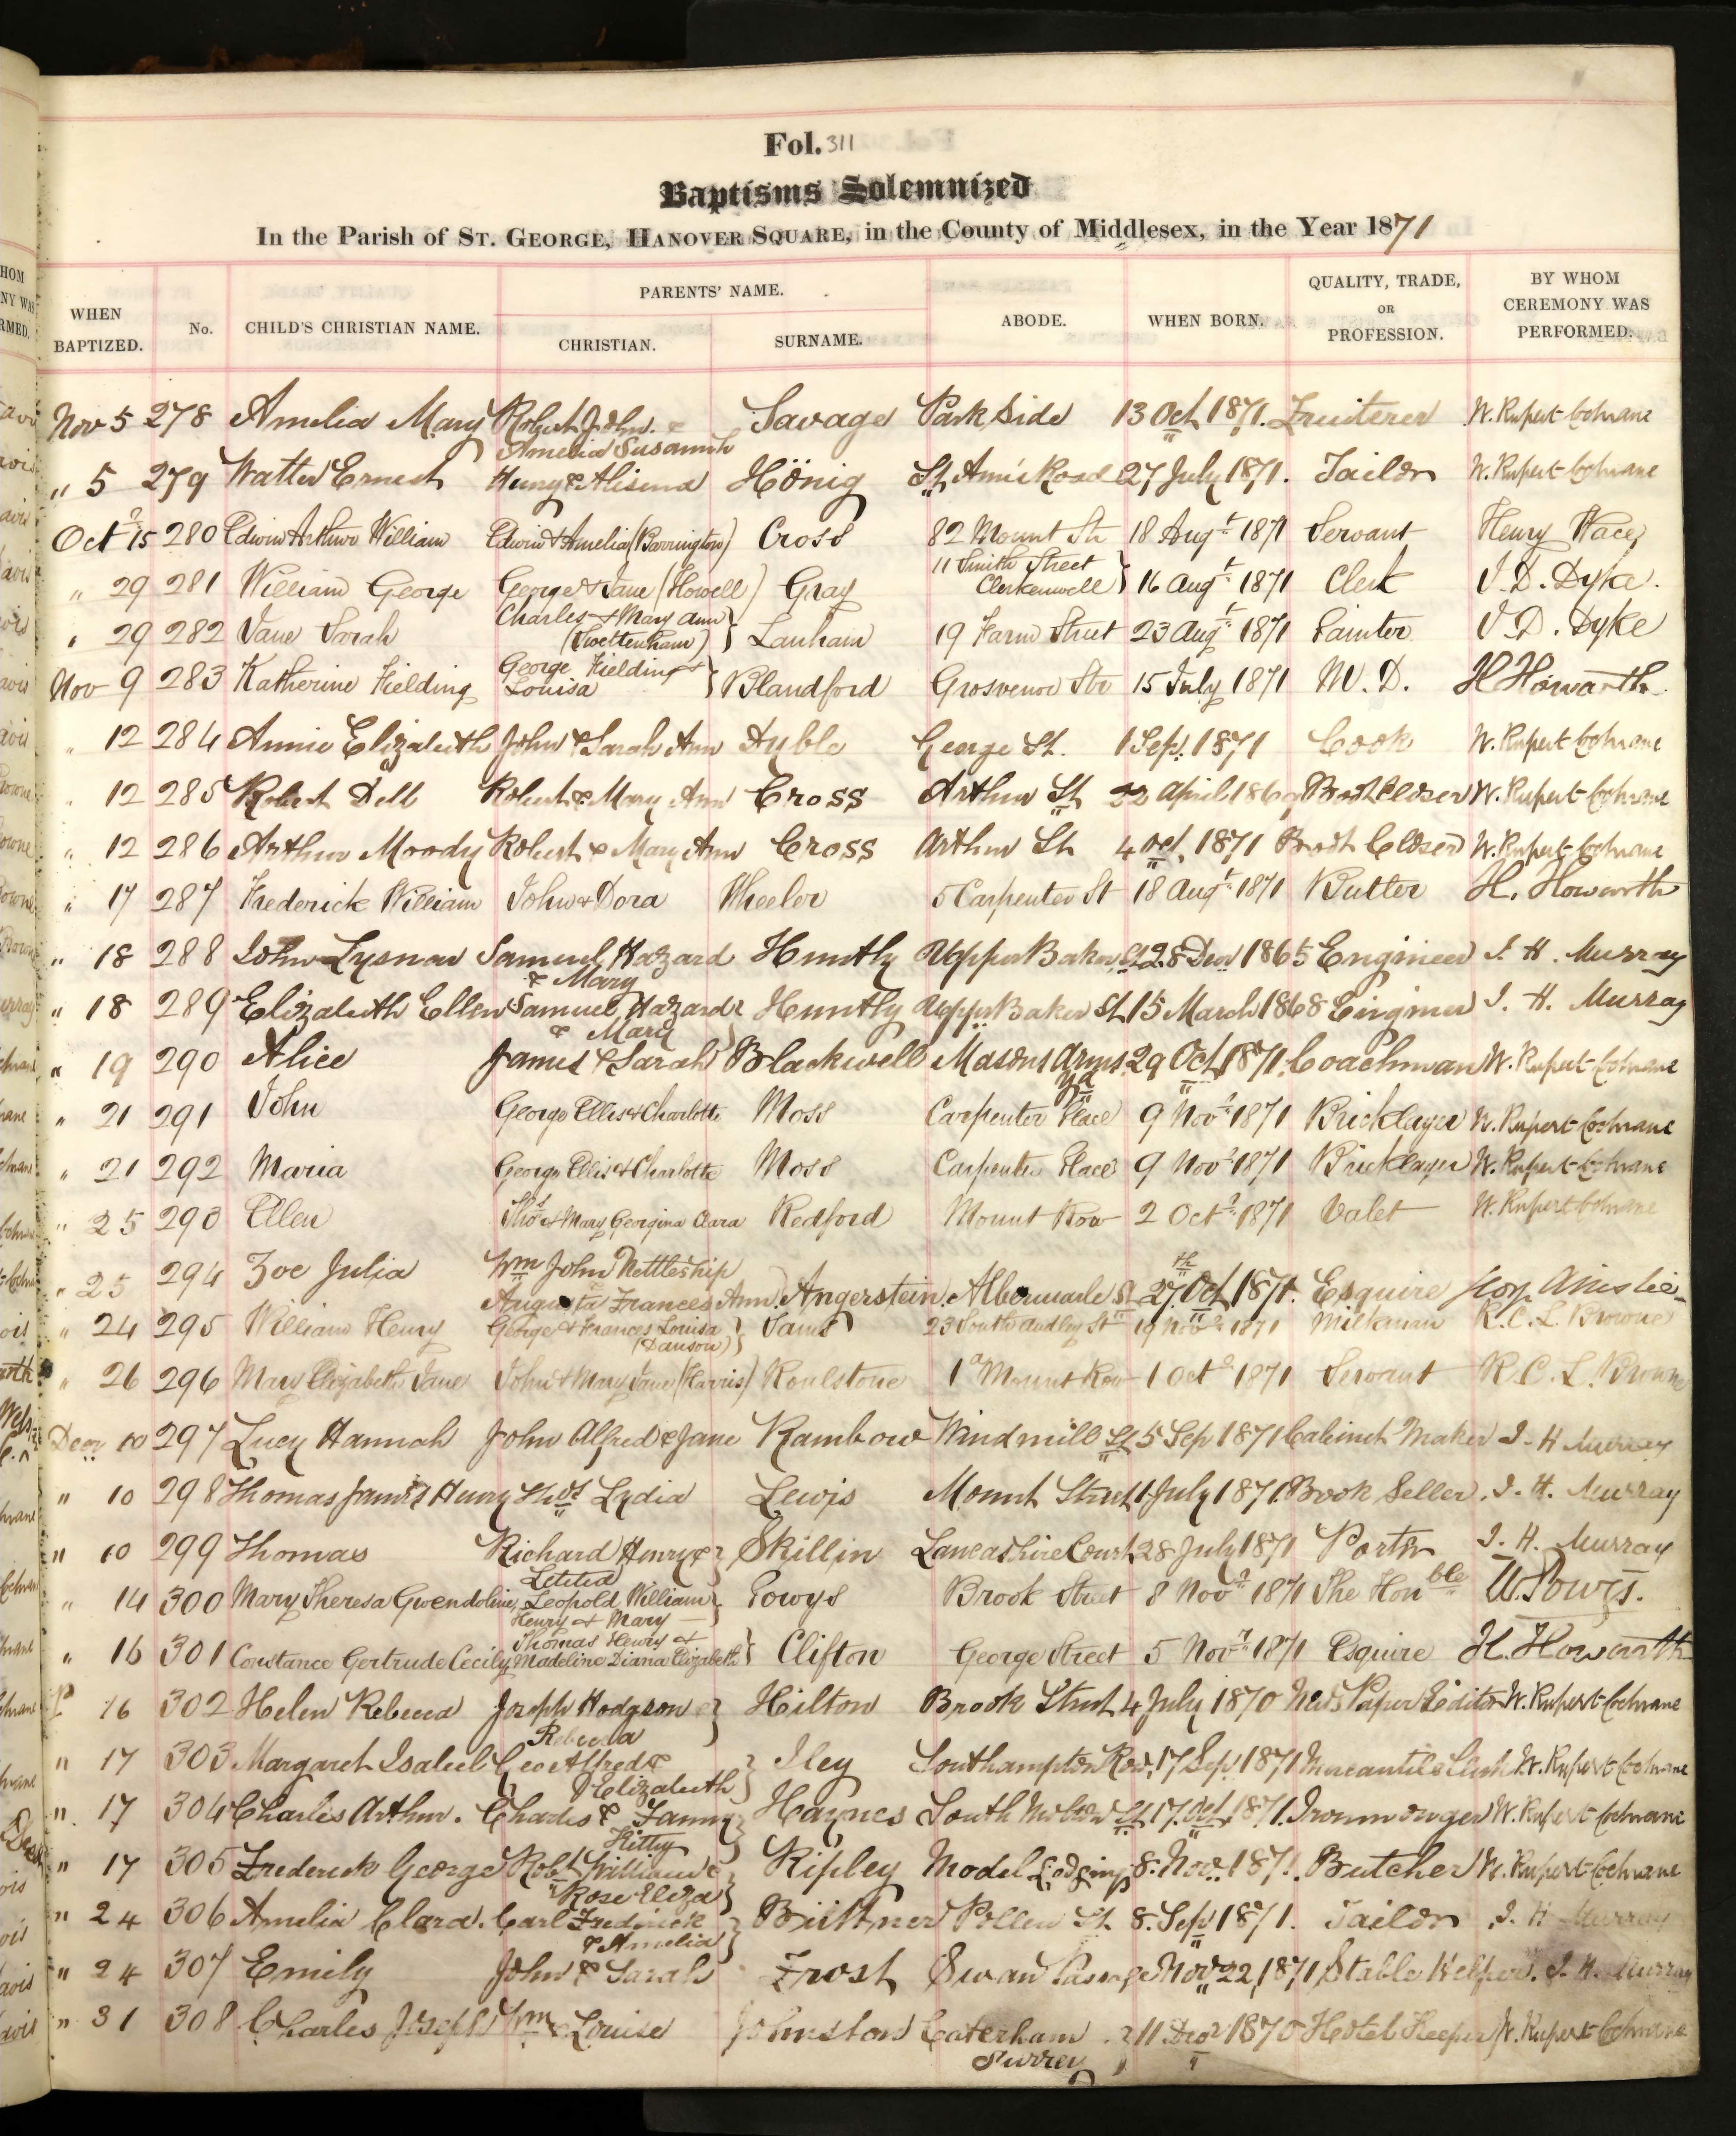 Fol. 311
Baptisms Solemnized
In the Parish of St. George, Hanover Square, in the County of Middlesex, in the Year 1871
WHEN BAPTIZED. No. CHILD'S CHRISTIAN NAME. PARENTS' NAME. CHRISTIAN. SURNAME. ABODE. WHEN BORN. QUALITY, TRADE, OR PROFESSION. BY WHOM CEREMONY WAS PERFORMED.
Nov 5 278 Amelia Mary Robert John & Amelia Susannah Savage Park Side 13 Oct 1871. Fruiterer W. Rupert Cochrane
" 5 279 Walter Ernest Henry & Alisena Hönig St Ann's Road 27 July 1871. Tailor W. Rupert Cochrane
Octr 15 280 Edwin Arthur William Edwin & Amelia (Barrington) Cross 82 Mount St 18 Augt 1871 Servant Henry Wace
" 29 281 William George George & Jane (Howell) Gray 11 Smith Street Clerkenwell } 16 Augt 1871 Clerk J. D. Dyke.
" 29 282 Jane Sarah Charles & Mary Ann (Twettenham) } Lanham 19 Farm Street 23 Augt 1871 Painter J. D. Dyke
Nov 9 283 Katherine Fielding George Fielding & Louisa } Blandford Grosvenor Str 15 July 1871 M. D. H Howarth
" 12 284 Annie Elizabeth John & Sarah Ann Ayble George St. 1 Sep. 1871 Cook W. Rupert Cochrane
" 12 285 Robert Dell Robert & Mary Ann Cross Arthur St 22 April 1869 Boot Closer W. Rupert Cochrane
" 12 286 Arthur Moody Robert & Mary Ann Cross Arthur St 4 Oct. 1871 Boot Closer W. Rupert Cochrane
" 17 287 Frederick William John & Dora Wheeler 5 Carpenter St 18 Augt 1871 Butler H. Howarth
" 18 288 John Lysnar Samuel Hazard & Mary Huntly Upper Baker St 28 Decr 1865 Engineer J. H. Murray
" 18 289 Elizabeth Ellen Samuel Hazard & Mary Huntly Upper Baker St 15 March 1868 Enginer J. H. Murray
" 19 290 Alice James & Sarah } Blackwell Masons Arms Yd 29 Oct 1871. Coachman W. Rupert Cochrane
" 21 291 John George Ellis & Charlotte Moss Carpenter Place 9 Novr 1871 Bricklayer W. Rupert Cochrane
" 21 292 Maria George Ellis & Charlotte Moss Carpenter Place 9 Novr 1871 Bricklayer W. Rupert Cochrane
" 25 293 Ellen Thos & Mary Georgina Clara Redford Mount Row 2 Octr 1871 Valet W. Rupert Cochrane
" 25 294 Zoe Julia Wm John Nettleship Augusta Frances Ann } Angerstein. Albermarle St 27th Oct 1871. Esquire Ainslie
" 24 295 William Henry George & Frances Louisa (Danson) } 23 South Audley St 19 Novr 1871 Milkman R. C. L. Browne
" 26 296 Mary Elizabeth Jane John & Mary Jane (Harris) Roulstone 1a Mount Row 1 Octr 1871 Servant R. C. L. Browne
Decr 10 297 Lucy Hannah John Alfred & Jane Rambow Windmill St 5 Sep 1871 Cabinet Maker J. H Murray
" 10 298 Thomas James Henry Thos Lydia Lewis Mount Street 1 July 1871. Book Seller. J. H. Murray
" 10 299 Thomas Richard Henry & Letitia } Skillin Lancashire Court 28 July 1871 Porter J. H. Murray
" 14 300 Mary Theresa Gwendoline Leopold William Henry & Mary } Powys Brook Street 8 Novr 1871 The Honble Powys.
" 16 301 Constance Gertrude Cecily Thomas Henry & Madeline Diana Elizabeth } Clifton George Street 5 Novr 1871 Esquire H. Howarth
P 16 302 Helen Rebecca Joseph Hodgson & Rebecca } Hilton Brook Street 4 July 1870 News Paper Editor W. Rupert Cochrane
" 17 303 Margaret Isabel Geo Alfred & Elizabeth } Iley Southampton Row. 17 Sep 1871 Mercantile Clerk W. Rupert Cochrane
" 17 304 Charles Arthur. Charles & Fanny Kitty } Haynes South Molton St 17 Oct 1871. Ironmonger W. Rupert Cochrane
" 17 305 Frederick George Robt William & Rose Eliza } Ripley Model Lodgings 8. Nov. 1871. Butcher W. Rupert Cochrane
" 24 306 Amelia Clara. Carl Frederick & Amelia } Büttner Pollen St 8. Sep 1871. Tailor J. H Murray
" 24 307 Emily John & Sarah Frost Swan Passage Nov 22, 1871 Stable Helper. J. H. Murray
" 31 308 Charles Joseph Wm & Louise Johnston Caterham Surrey } 11 Decr 1870 Hotel Keeper W. Rupert Cochrane